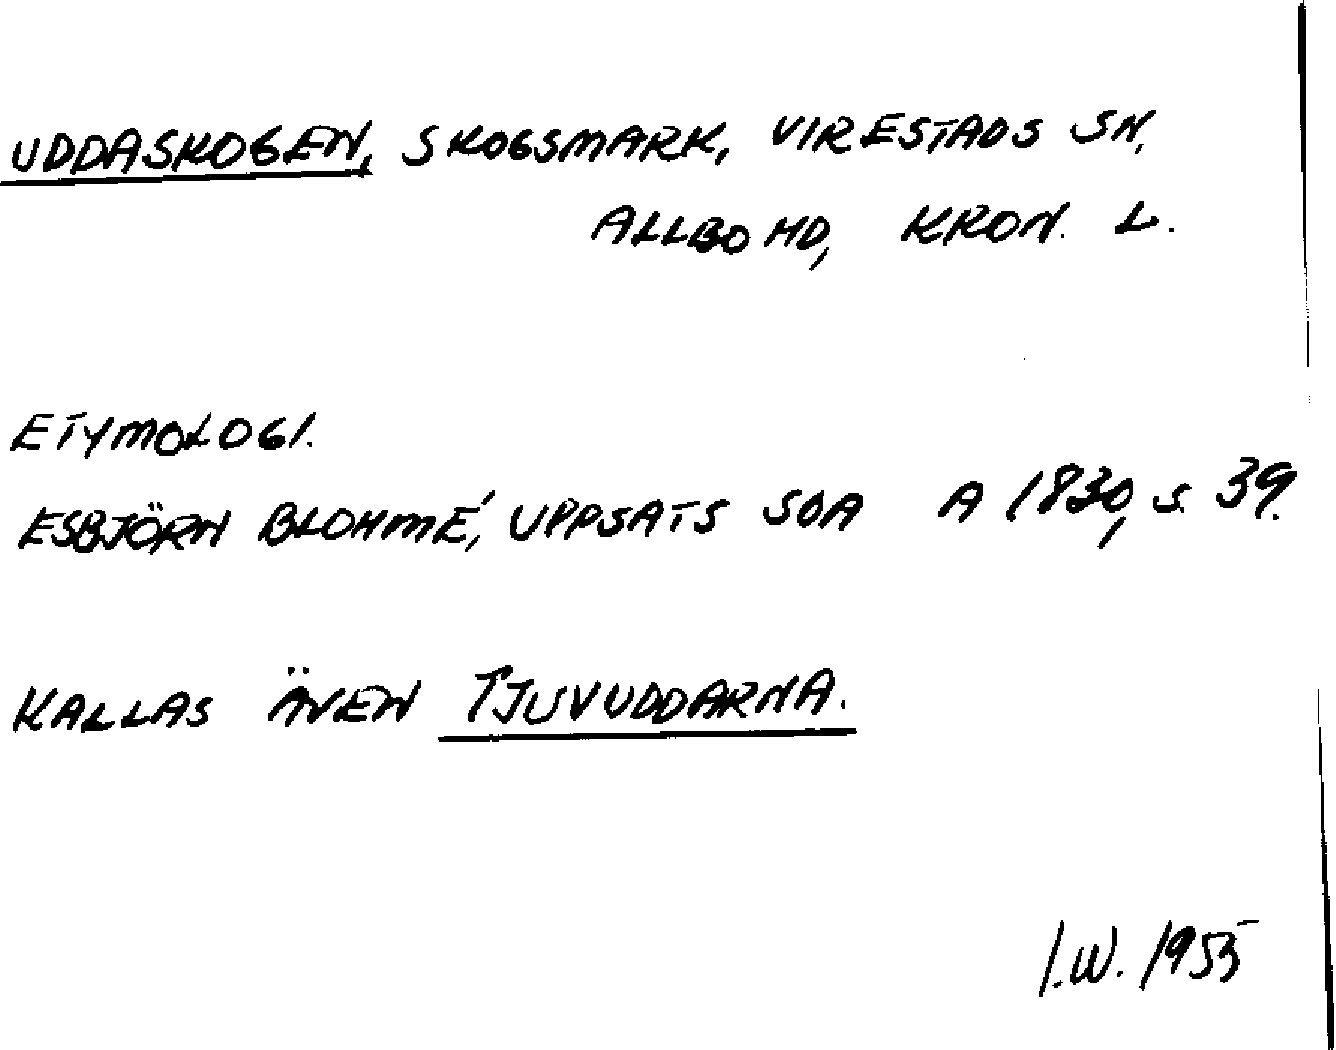 UDDASKOGEN, SKOGSMARK, VIRESTADS SN,
ALLBO HD, KRON. L.
ETYMOLOGI.
ESBJÖRN BLOHMÉ, UPPSATS SOA A 1830, S. 39.
KALLAS ÄVEN TJUVUDDARNA.
I.W. 1955